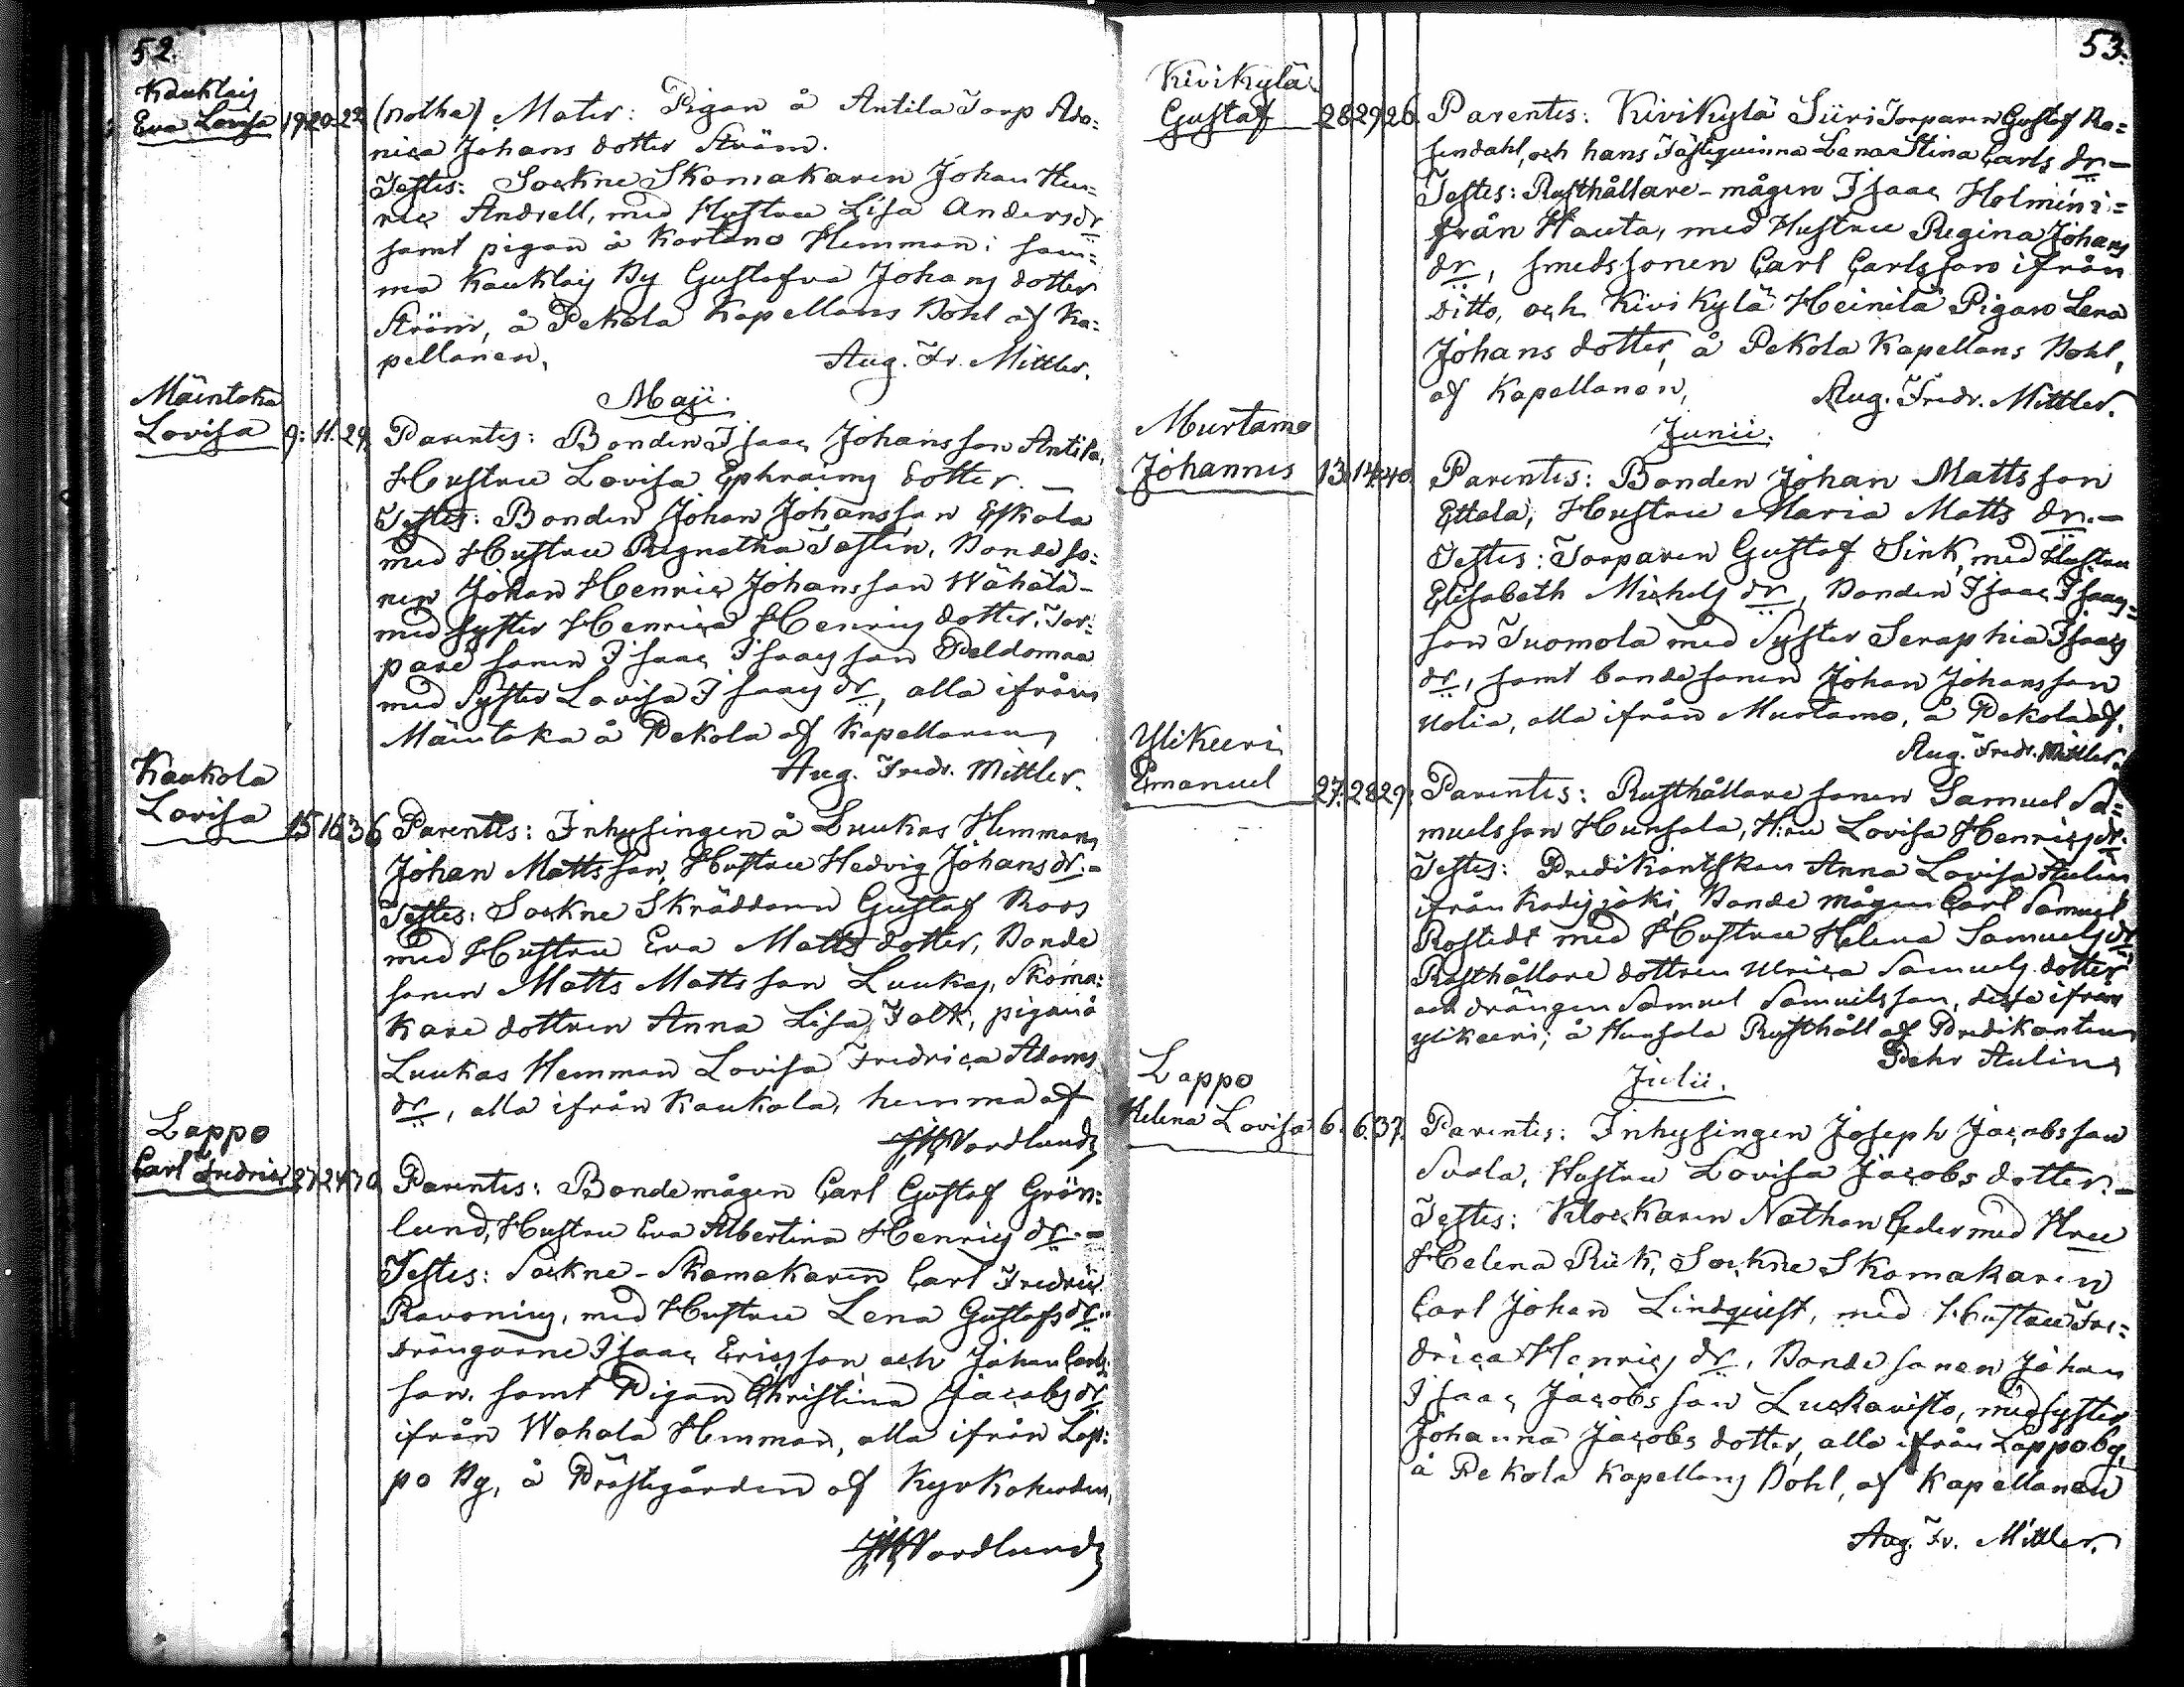 52.
Kauklais
Eva Lovisa 19 20 22 (notha) Mater: Pigan å Antila Torp Ado=
nica Johans dotter Ström.
Testes: Sockne Skomakaren Johan Hen=
ric Andrell, med Hustru Lisa Anders dr
samt pigan å Kortano Hemman i sam=
ma Kauklais By Gustafva Johans dotter
Ström, å Pekola Kapellans Bohl af Ka=
pellanen,
Aug. Fr. Mittler.
Maji.
Mäentaka
Lovisa 9. 11. 29. Parentes: Bonden Isaac Johansson Antila,
Hustru Lovisa Ephraims dotter. —
Testes: Bonden Johan Johansson Eskola
med Hustru Regnatha Tastin, Bonde so=
nen Johan Henric Johansson Wähälä-
med syster Henrica Henrics dotter, Tor=
pare sonen Isaac Isaacsson Peldomaa
med Syster Lovisa Isaacs dr, alla ifrån
Mäentaka å Pekola af Kapellanen,
Aug. Fredr. Mittler.
Kaukola
Lovisa 15 16 36 Parentes: Inhysingen å Luukas Hemman,
Johan Mattsson, Hustru Hedvig Johans dr.-
Testes: Sockne Skräddaren Gustaf Roos
med Hustru Eva Matts dotter, Bonde
sonen Matts Mattsson Luukas, Skoma=
kare dottren Anna Lisa Falk, pigan å
Luukas Hemman Lovisa Fredrica Adams
dr, alla ifrån Kaukola, hemma af
Nordlund
Lappo
Carl Fredric 27 27 70 Parentes: Bondemågen Carl Gustaf Grön=
lund, Hustru Eva Albertina Henrics dr.-
Testes: Sockne-Skomakaren Carl Fredric
Ravonius, med Hustru Lena Gustafs dr.
drängarne Isaac Ericsson och Johan Carls
son, samt Pigan Christina Jacobs dr
ifrån Wahala Hemman, alla ifrån Lap=
po By, å Prästegården af Kyrkoherden,
Nordlund
53.
Kivikylä
Gustaf 28 29 26 Parentes: Kivikylä Siiri Torparen Gustaf Ro=
sendahl, och hans Fästeqvinna Lena Stina Carls dr-
Testes: Rusthållare-mågen Isaac Holmén i=
från Hauta, med Hustru Regina Johans
dr, smedssonen Carl Carlsson ifrån
ditto, och Kivikylä Heinilä Pigan Lena
Johans dotter, å Pekola Kapellans Bohl,
af Kapellanen,
Aug. Fredr. Mittler.
Junii.
Murtamo
Johannes 13. 14. 40. Parentes: Bonden Johan Mattsson
Ettala, Hustru Maria Matts dr.-
Testes: Torparen Gustaf Sink, med Hustru
Elisabeth Michels dr, Bonden Isaac Isaacs=
son Tuomola med Syster Seraphia Isaacs
dr, samt bondesonen Johan Johansson
Uolia, alla ifrån Murtamo, å Pekola af.
Aug. Fredr. Mittler.
Ylikeeri
Emanuel 27. 28 29. Parentes: Rusthållare sonen Samuel Sa=
muelsson Hunsala, H:ru Lovisa Henrics dr.
Testes: Predikantskan Anna Lovisa Aulin
ifrån Kodisjoki, Bonde mågen Carl Samuel
Rostedt med Hustru Helena Samuels dr
Rusthållare dottren Ulrica Samuels dotter
och drängen Samuel Samuelsson, desse ifrån
Ylikeeri; å Hunsala Rusthåll af Predikanten
Pehr Aulin,
Julii.
Lappo
Helena Lovisa 6. 6. 37. Parentes: Inhysingen Joseph Jacobsson
Hustru Lovisa Jacobs dotter.-
Testes: Klockaren Nathan Ceder med H:ru
Helena Rúk, Sockne Skomakaren
Carl Johan Lindquist, med Hustru Fre=
drica Henrics dr, Bonde sonen Johan
Isaac Jacobsson Luckavisto, med syster
Johanna Jacobs dotter, alla ifrån Lappo by,
å Pekola Kapellans Bohl, af Kapellanen
Aug. Fr. Mittler.